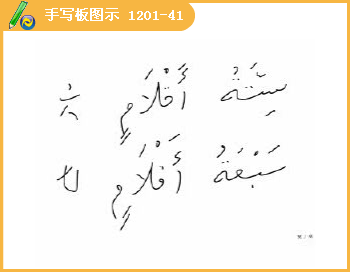 手写板图示 1201-41
سِتَّةُ أَقْلَامٍ 六
سَبْعَةُ أَقْلَامٍ 七